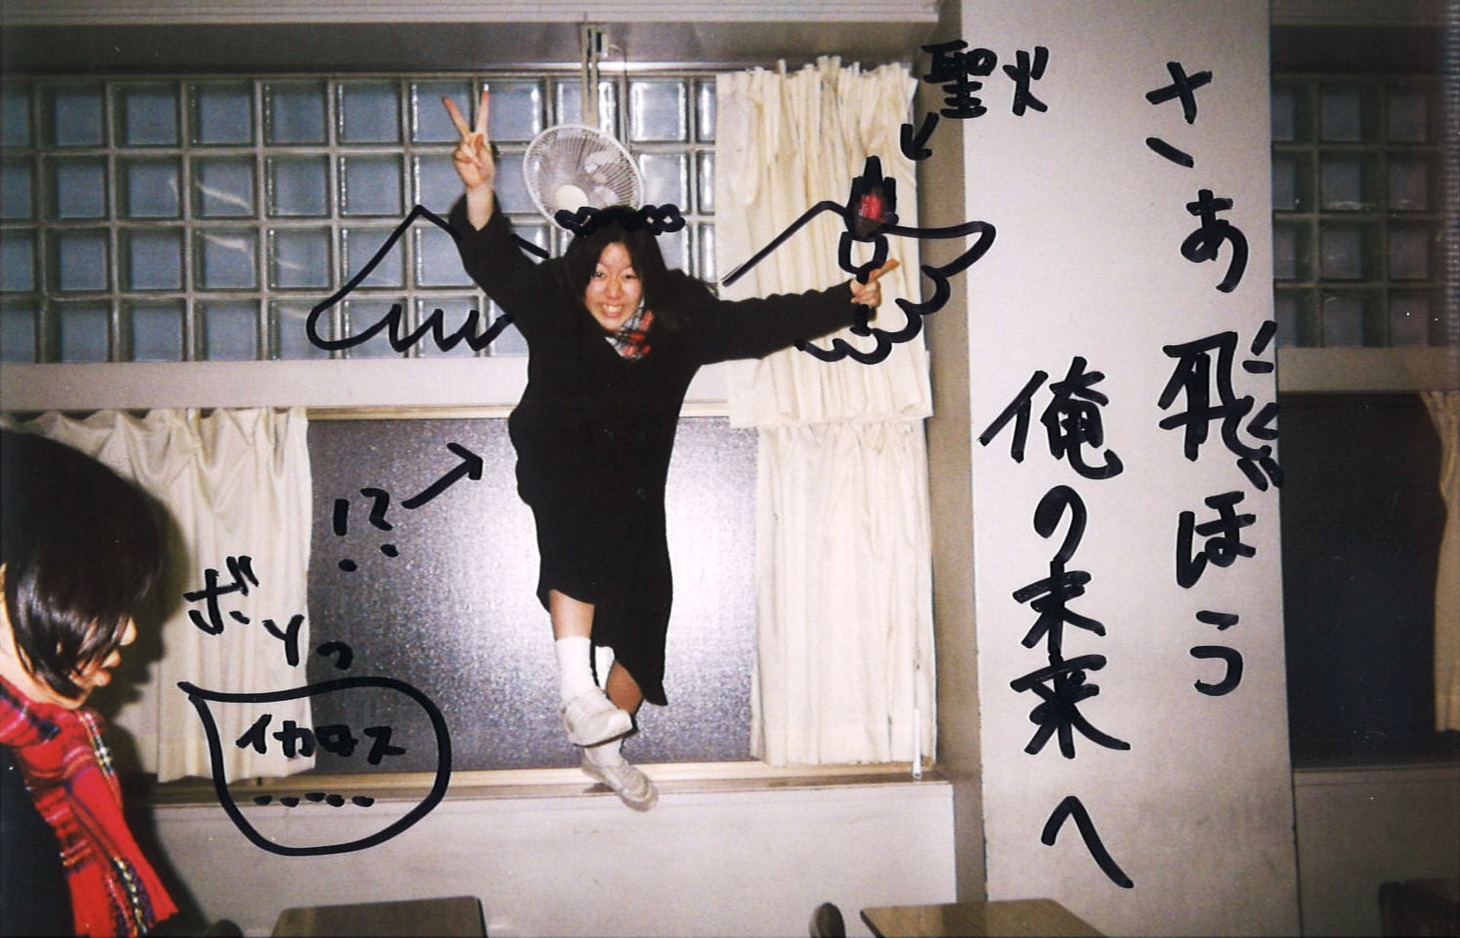 さあ飛ぼう
俺の未来へ
聖火
!?
ボソっ
イカロス
.....